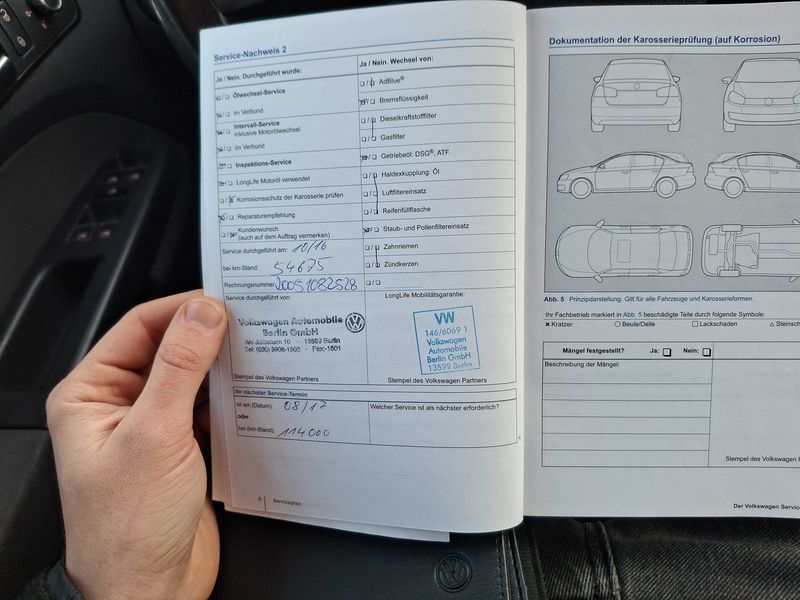 Service-Nachweis 2
Ja / Nein. Durchgeführt wurde:
Ölwechsel-Service
im Verbund
Intervall-Service
inklusive Motorölwechsel
im Verbund
Inspektions-Service
LongLife Motoröl verwendet
Korrosionsschutz der Karosserie prüfen
Reparaturempfehlung
Kundenwunsch
(auch auf dem Auftrag vermerken)
Service durchgeführt am: 10/16
bei km-Stand: 54675
Rechnungsnummer
Service durchgeführt von:
Volkswagen Automobile
Berlin GmbH
Am Juliusturm 10 · 13599 Berlin
Stempel des Volkswagen Partners
Ja / Nein. Wechsel von:
AdBlue®
Bremsflüssigkeit
Dieselkraftstofffilter
Gasfilter
Getriebeöl: DSG®, ATF
Haldexkupplung: Öl
Luftfiltereinsatz
Reifenfüllflasche
Staub- und Pollenfiltereinsatz
Zahnriemen
Zündkerzen
LongLife Mobilitätsgarantie:
VW
146/6069 1
Volkswagen
Automobile
Berlin GmbH
13599 Berlin
Stempel des Volkswagen Partners
Ihr nächster Service-Termin
ist am (Datum): 08/17
oder
bei (km-Stand): 114000
Welcher Service ist als nächster erforderlich?
8 Serviceplan
Dokumentation der Karosserieprüfung (auf Korrosion)
Abb. 5 Prinzipdarstellung. Gilt für alle Fahrzeuge und Karosserieformen.
Ihr Fachbetrieb markiert in Abb. 5 beschädigte Teile durch folgende Symbole:
× Kratzer ○ Beule/Delle □ Lackschaden △ Steinsch
Mängel festgestellt? Ja: Nein:
Beschreibung der Mängel:
Stempel des Volkswagen P
Der Volkswagen Servic